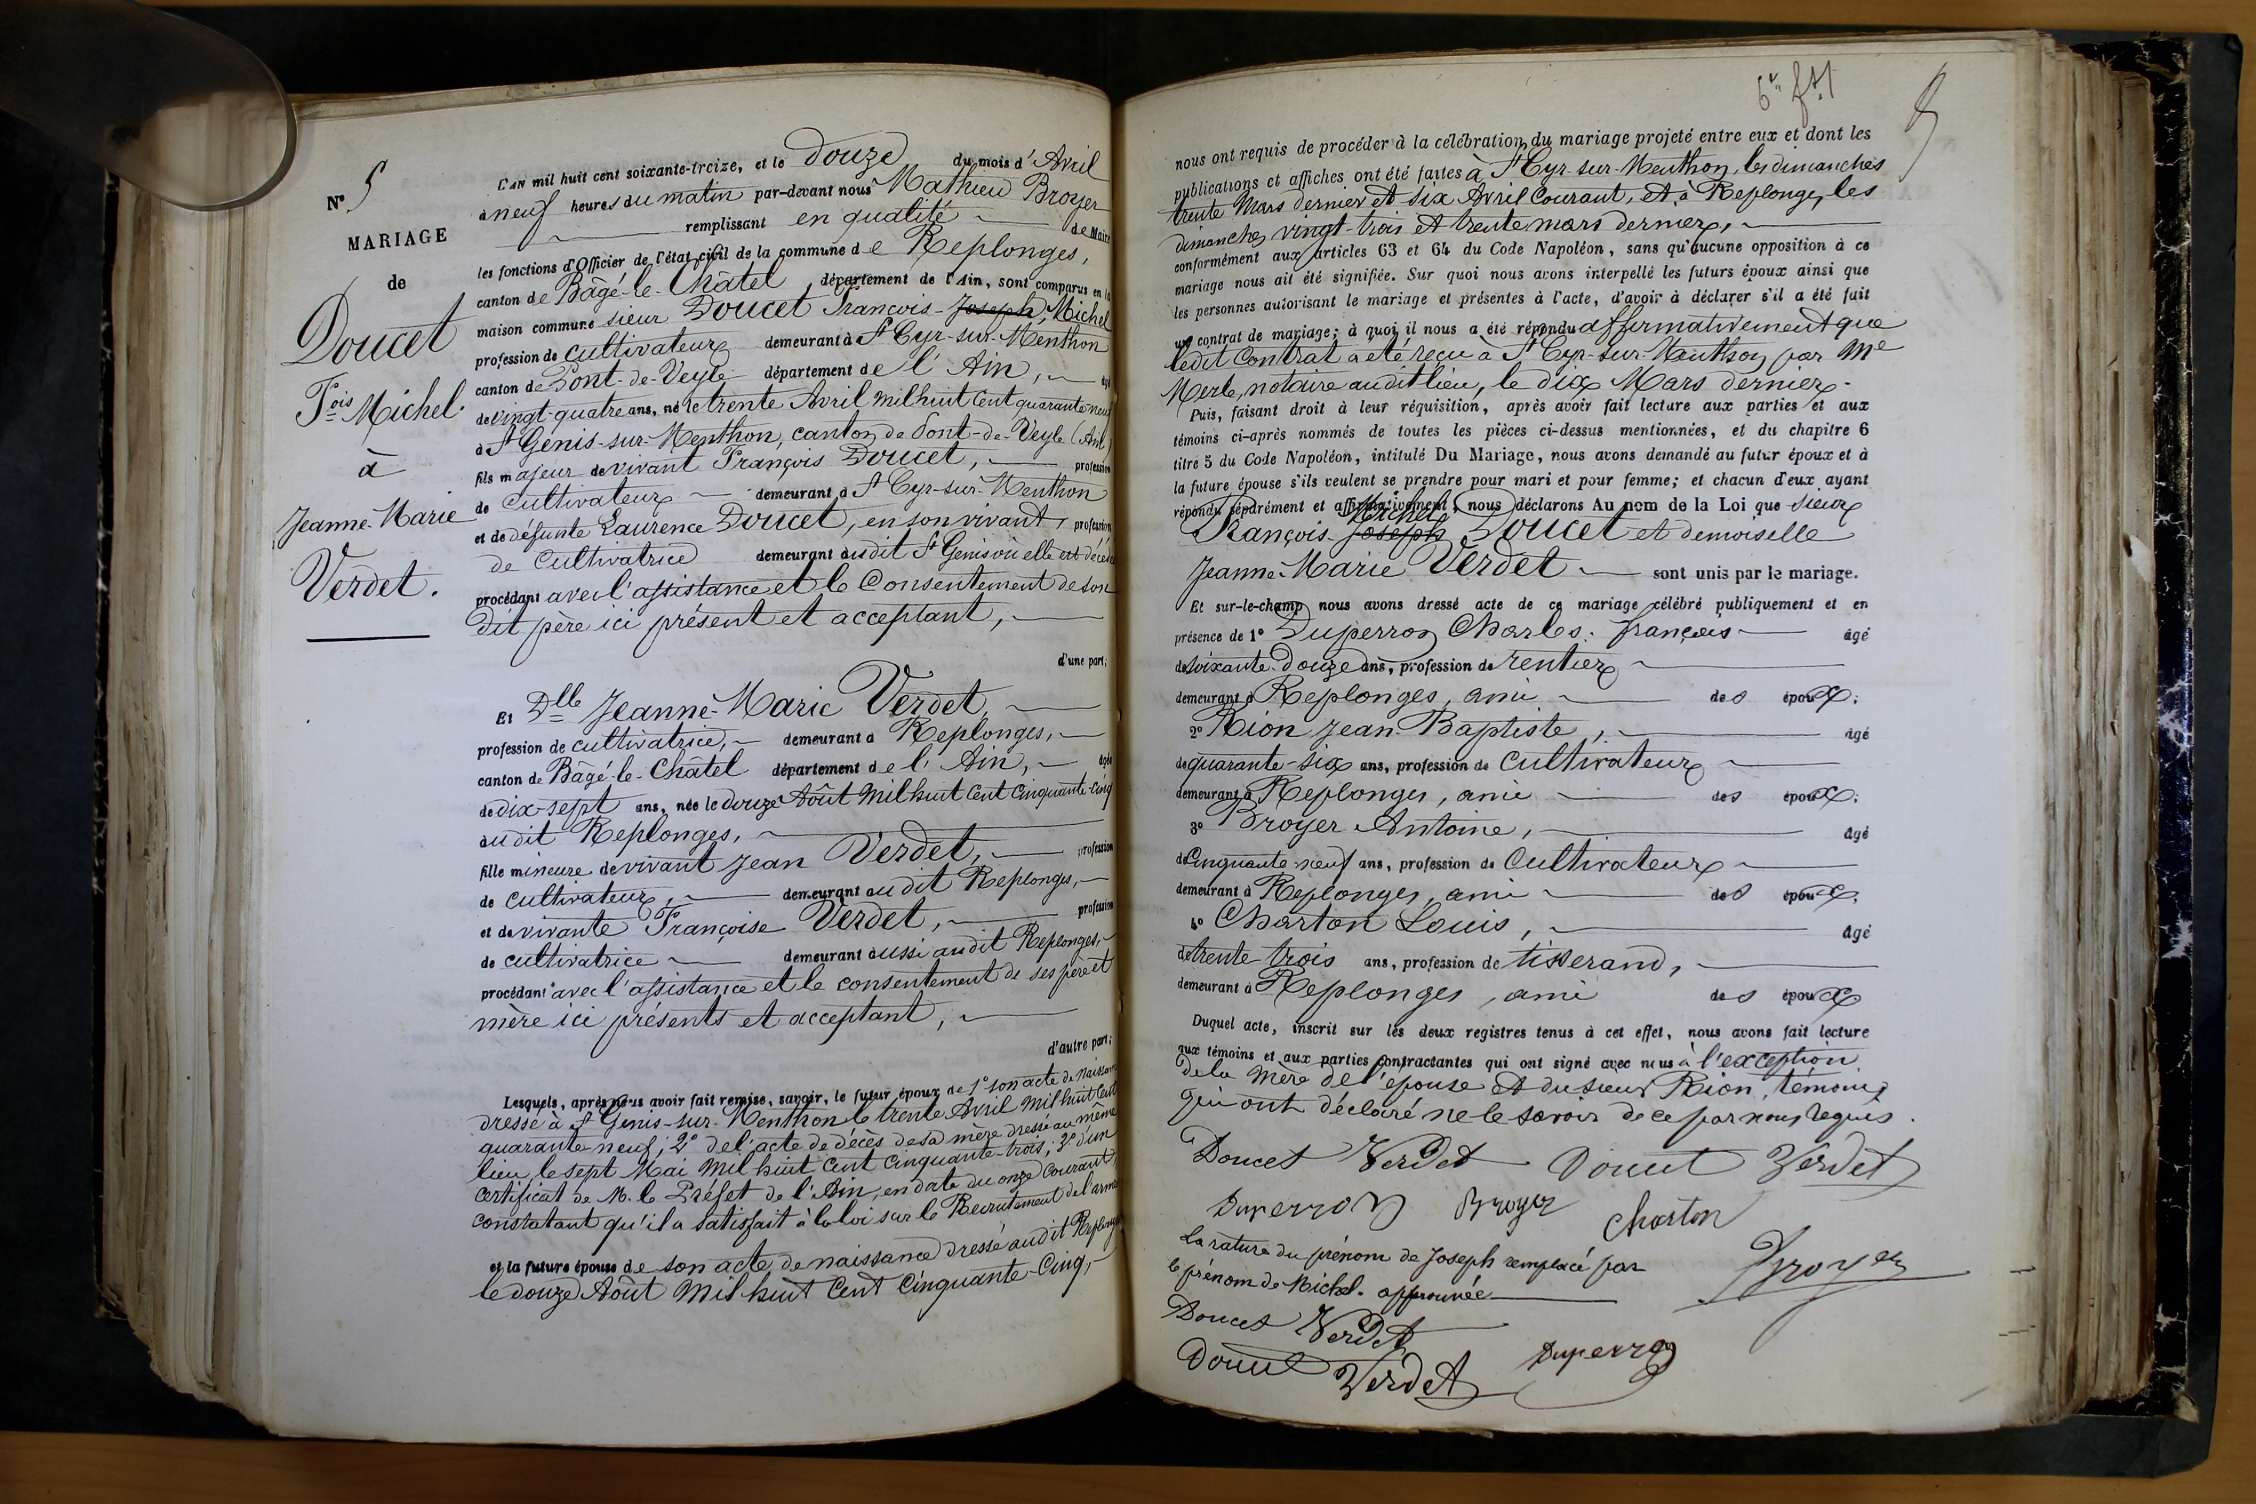 N° 5
MARIAGE
de
Doucet
Fois Michel.
à
Jeanne-Marie
Verdet.
L'AN mil huit cent soixante-treize, et le douze du mois d'Avril
à neuf heures du matin par-devant nous Mathieu Broyer
remplissant en qualité de Maire
les fonctions d'Officier de l'état civil de la commune de Replonges,
canton de Bâgé-le-Châtel, département de l'Ain, sont comparus en la
maison commune sieur Doucet François-Joseph, Michel
profession de cultivateur demeurant à St Cyr-sur-Menthon
canton de Pont-de-Veyle département de l'Ain, âgé
de vingt-quatre ans, né le trente Avril mil huit cent quarante neuf
à St Genis-sur-Menthon, canton de Pont-de-Veyle (Ain)
fils majeur de vivant François Doucet, profession
de cultivateur demeurant à St Cyr-sur-Menthon
et de défunte Laurence Doucet, en son vivant, profession
de cultivatrice demeurant audit St Genis où elle est décédée
procédant avec l'assistance et le consentement de son
dit père ici présent et acceptant,
d'une part;
Et Dlle Jeanne-Marie Verdet,
profession de cultivatrice, demeurant à Replonges,
canton de Bâgé-le-Châtel département de l'Ain, âgée
de dix-sept ans, née le douze Août mil huit cent cinquante-cinq
audit Replonges,
fille mineure de vivant Jean Verdet, profession
de cultivateur, demeurant audit Replonges,
et de vivante Françoise Verdet, profession
de cultivatrice demeurant aussi audit Replonges,
procédant avec l'assistance et le consentement de ses père et
mère ici présents et acceptant,
d'autre part;
Lesquels, après nous avoir fait remise, savoir, le futur époux de 1° son acte de naissance
dressé à St Genis-sur-Menthon le trente Avril mil huit cent
quarante neuf; 2° de l'acte de décès de sa mère dressé au même
lieu, le sept Mai mil huit cent cinquante-trois; 3° d'un
certificat de M. le Préfet de l'Ain, en date du onze courant,
constatant qu'il a satisfait à la loi sur le Recrutement de l'armée
et la future épouse de son acte de naissance dressé audit Replonges
le douze Août mil huit cent cinquante-cinq,
nous ont requis de procéder à la célébration du mariage projeté entre eux et dont les
publications et affiches ont été faites à St Cyr-sur-Menthon, les dimanches
trente Mars dernier et six Avril courant, et à Replonges, les
dimanches vingt-trois et trente mars dernier,
conformément aux articles 63 et 64 du Code Napoléon, sans qu'aucune opposition à ce
mariage nous ait été signifiée. Sur quoi nous avons interpellé les futurs époux ainsi que
les personnes autorisant le mariage et présentes à l'acte, d'avoir à déclarer s'il a été fait
un contrat de mariage; à quoi il nous a été répondu affirmativement que
ledit contrat a été reçu à St Cyr-sur-Menthon par Me
Merle, notaire audit lieu, le dix Mars dernier.
Puis, faisant droit à leur réquisition, après avoir fait lecture aux parties et aux
témoins ci-après nommés de toutes les pièces ci-dessus mentionnées, et du chapitre 6
titre 5 du Code Napoléon, intitulé Du Mariage, nous avons demandé au futur époux et à
la future épouse s'ils veulent se prendre pour mari et pour femme; et chacun d'eux ayant
répondu séparément et affirmativement, nous déclarons Au nom de la Loi que sieur
Michel
François-Joseph Doucet et demoiselle
Jeanne-Marie Verdet sont unis par le mariage.
Et sur-le-champ nous avons dressé acte de ce mariage célébré publiquement et en
présence de 1° Duperron Charles-François âgé
de soixante-douze ans, profession de rentier
demeurant à Replonges, ami des époux;
2° Rion Jean-Baptiste, âgé
de quarante-six ans, profession de cultivateur
demeurant à Replonges, ami des époux;
3° Broyer Antoine, âgé
de cinquante-neuf ans, profession de cultivateur
demeurant à Replonges, ami des époux;
4° Charton Louis, âgé
de trente-trois ans, profession de tisserand,
demeurant à Replonges, ami des époux
Duquel acte, inscrit sur les deux registres tenus à cet effet, nous avons fait lecture
aux témoins et aux parties contractantes qui ont signé avec nous à l'exception
de la mère de l'épouse et du sieur Rion, témoin,
qui ont déclaré ne le savoir de ce par nous requis.
Doucet Verdet Doucet Verdet
Duperron Broyer Charton
La rature du prénom de Joseph remplacé par
le prénom de Michel. approuvée
Broyer
Doucet Verdet
Doucet Verdet Duperron